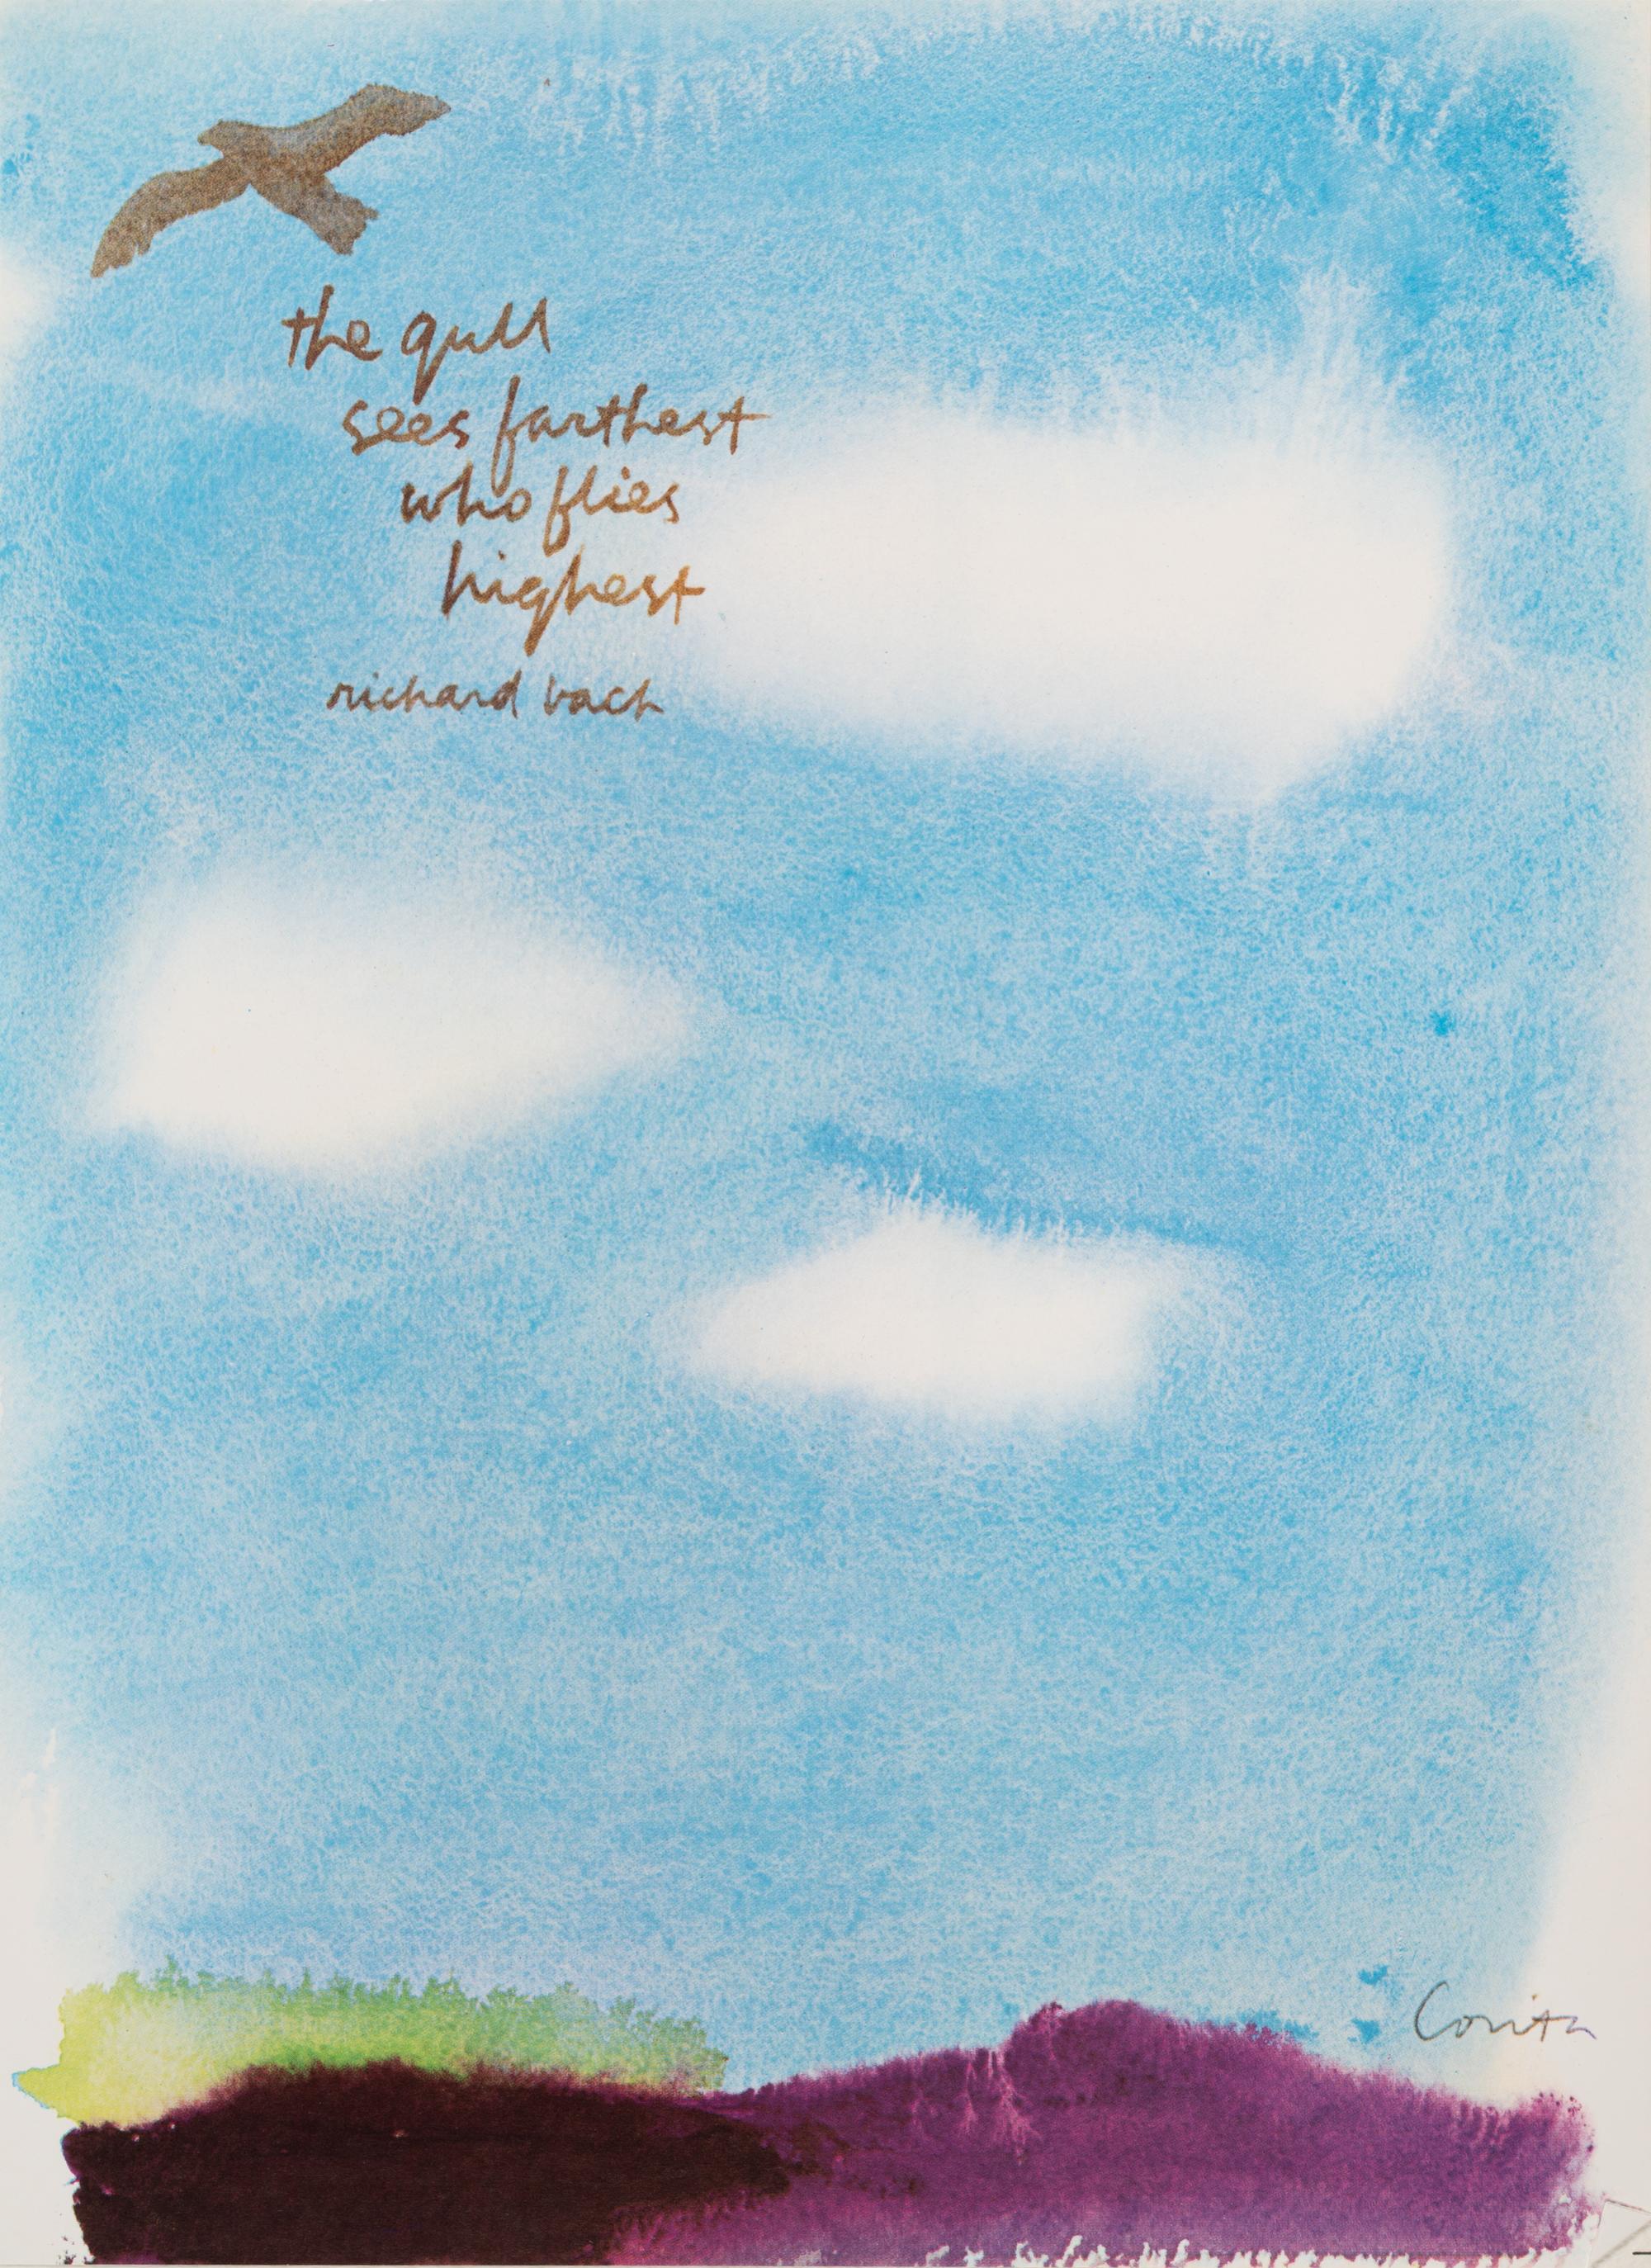 the gull
sees farthest
who flies
highest
richard bach
Corita